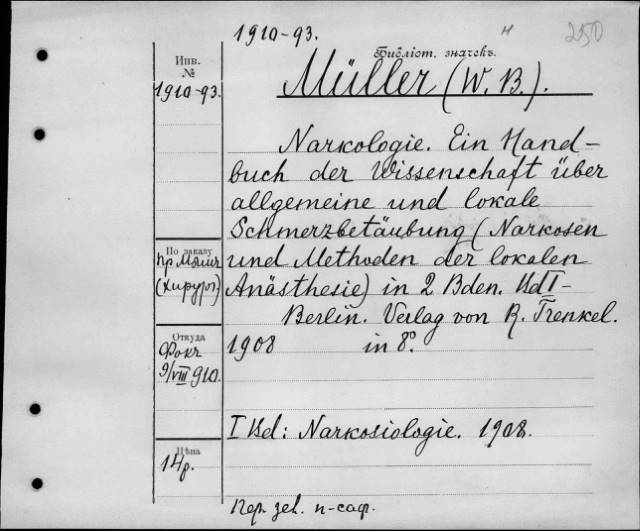 1910-93.
250
Инв.
№
1910-93.
Библіот. значекъ.
Müller (W. B.).
Narkologie. Ein Hand-
buch der Wissenschaft über
allgemeine und lokale
Schmerzbetäubung (Narkosen
und Methoden der lokalen
Anästhesie) in 2 Bden. Bd I-
Berlin. Verlag von R. Trenkel.
1908 in 8°.
По заказу
пр
(хирург.)
Откуда
Фокъ
9/VIII 910.
I Bd: Narkosiologie. 1908.
Цѣна
14р.
Пер. зел. п-саф.